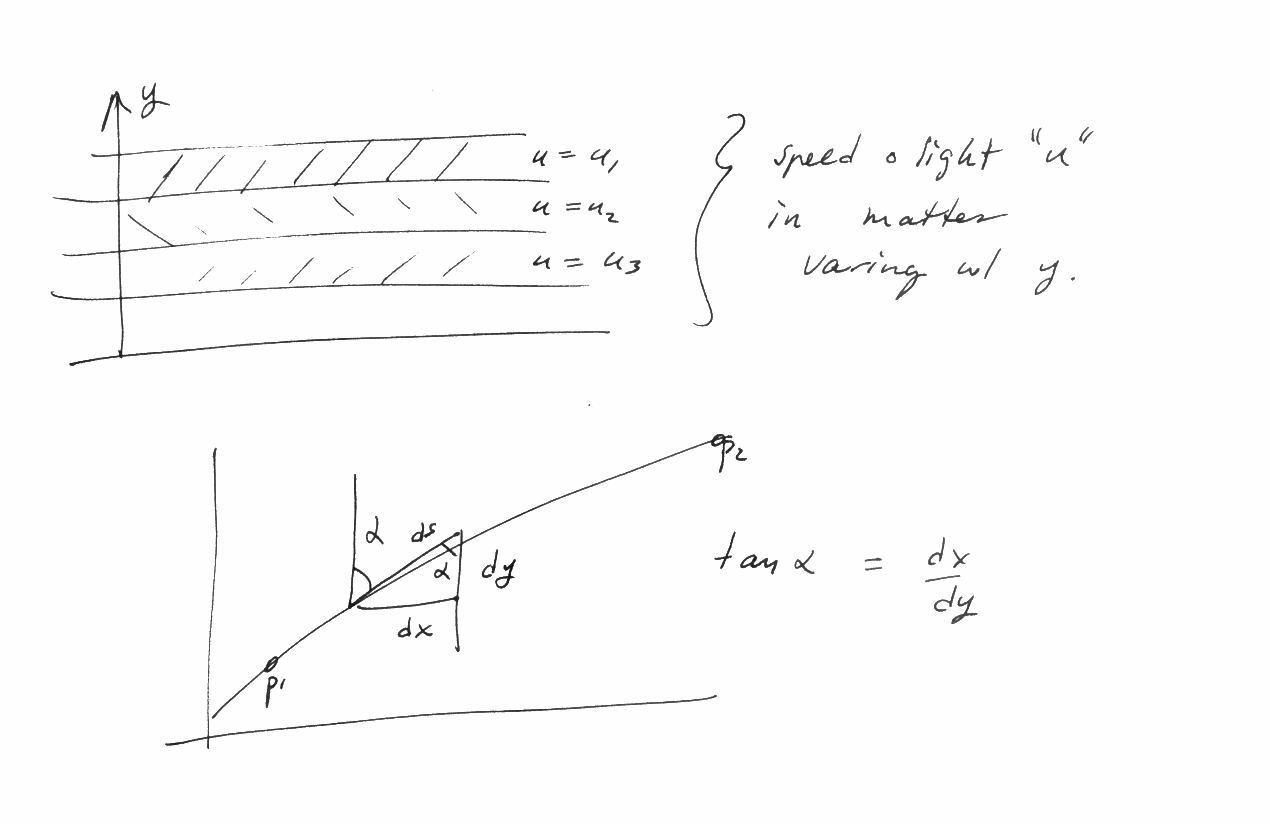 y
u = u₁
u = u₂
u = u₃
speed o light "u"
in matter
varing w/ y.
p₂
α ds
α dy
dx
p₁
tan α = dx/dy